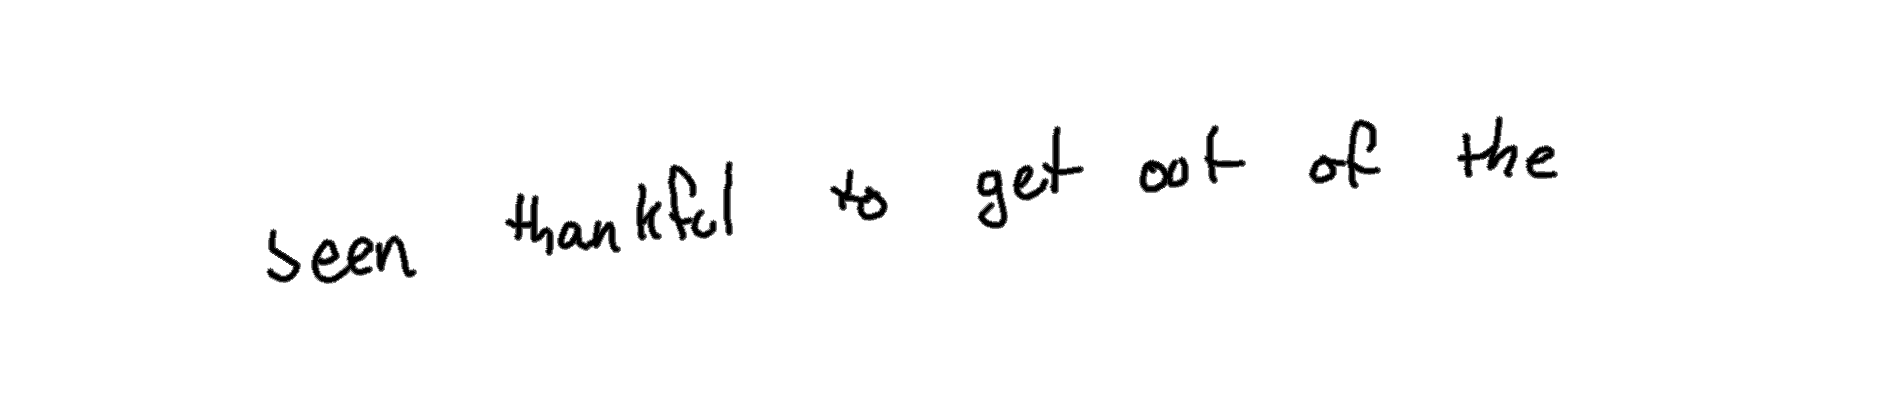 seen thankful to get out of the